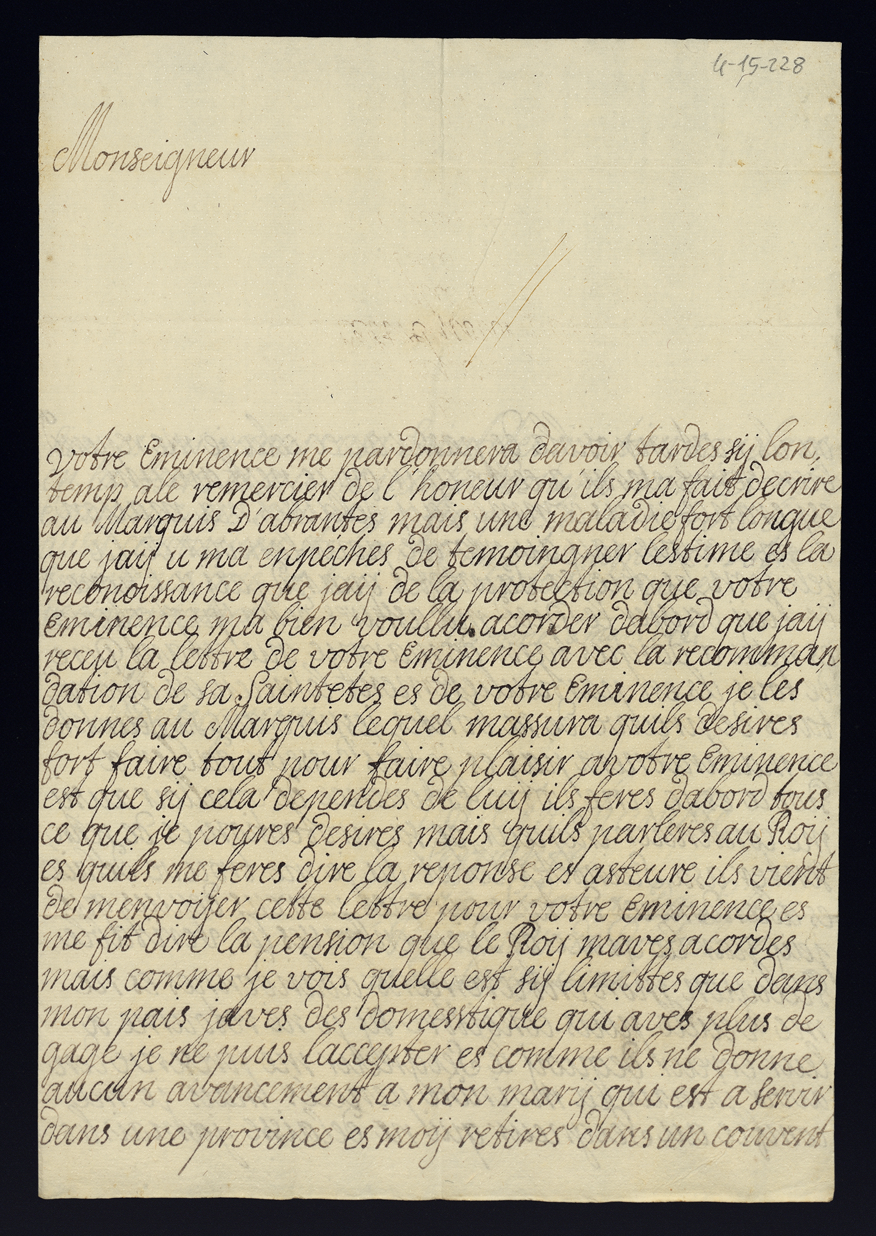 4-15-228
Monseigneur
votre Eminence me pardonnera davoir tardes sij lon,
temp ale remercier de l'honeur qu'ils ma fait decrire
au Marquis D'abrantes mais une maladie fort longue
que jaij u ma enpeches de temoingner lestime es la
reconoissance que jaij de la protection que votre
Eminence ma bien voullu acorder dabord que jaij
receu la lettre de votre Eminence avec la recomman
dation de sa Saintetes es de votre Eminence je les
donnes au Marquis lequel massura quils desires
fort faire tout pour faire plaisir avotre Eminence
est que sij cela dependes de luij ils feres dabord tous
ce que je poures desires mais quils parleres au Roij
es quils me feres dire la reponse es asteure ils vient
de menvoijer cette lettre pour votre Eminence es
me fit dire la pension que le Roij maves acordes
mais comme je vois quelle est sij limittes que dans
mon pais javes des domesstique qui aves plus de
gage je ne puis laccepter es comme ils ne donne
aucun avancement a mon marij qui est a servir
dans une province es moij retires dans un couvent